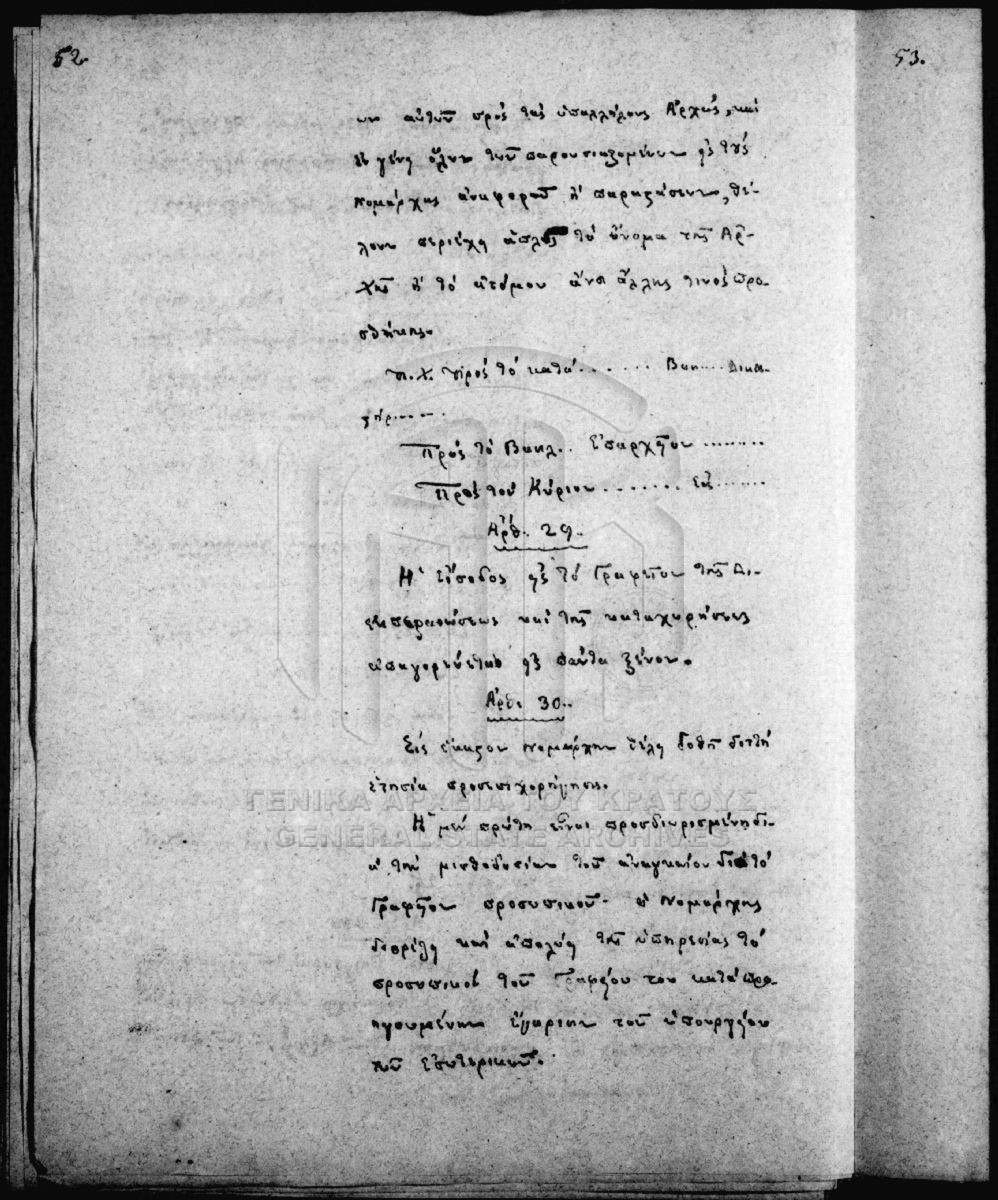 52.
53.
ων αὐτῶν πρὸς τὰς ὑπαλλήλους Ἀρχὰς, καὶ
ἐν γένει ὅλων τῶν παρουσιαζομένων εἰς τοὺς
Νομάρχας ἀναφορῶν ἢ παραστάσεων, θέ-
λουν περιέχει ἁπλῶς τὸ ὄνομα τῆς Ἀρ-
χῆς ἢ τὸ ἄτομον ἄνευ ἄλλης τινὸς προ-
σθήκης.
π.χ. Πρὸς τὸ κατὰ . . . . . . Βασ.... Δικα-
τήρι.....
Πρὸς τὸ Βασιλ.. Ἐπαρχεῖον ........
Πρὸς τὸν Κύριον ........ εἰς .......
Ἄρθ. 29.
Ἡ εἴσοδος εἰς τὸ Γραφεῖον τῆς Δι-
εκπεραιώσεως καὶ τῆς καταχωρήσεως
ἀπαγορεύεται εἰς πάντα ξένον.
Ἄρθ. 30.
Εἰς ἕκαστον Νομάρχην θέλει δοθῆ διττὴ
ἐτησία προσεπιχορήγησις.
Ἡ μὲν πρώτη εἶναι προσδιωρισμένη δι-
ὰ τὴν μισθοδοσίαν τοῦ ἀναγκαίου διὰ τὸ
Γραφεῖον προσωπικοῦ· ὁ Νομάρχης
διορίζει καὶ ἀπολύει τῆς ὑπηρεσίας τὸ
προσωπικὸν τοῦ Γραφείου του κατὰ προ-
ηγουμένην ἔγκρισιν τοῦ ὑπουργείου
τῶν Ἐσωτερικῶν.
ΓΕΝΙΚΑ ΑΡΧΕΙΑ ΤΟΥ ΚΡΑΤΟΥΣ
GENERAL STATE ARCHIVES